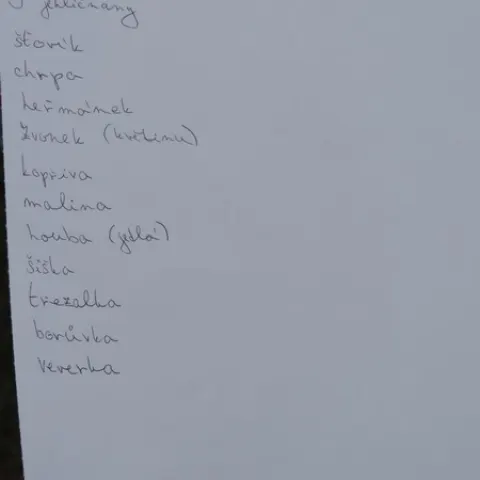 5 jehličnany
šťovík
chrpa
heřmánek
zvonek (květinu)
kopřiva
malina
houba (jedlá)
šiška
třezalka
borůvka
veverka